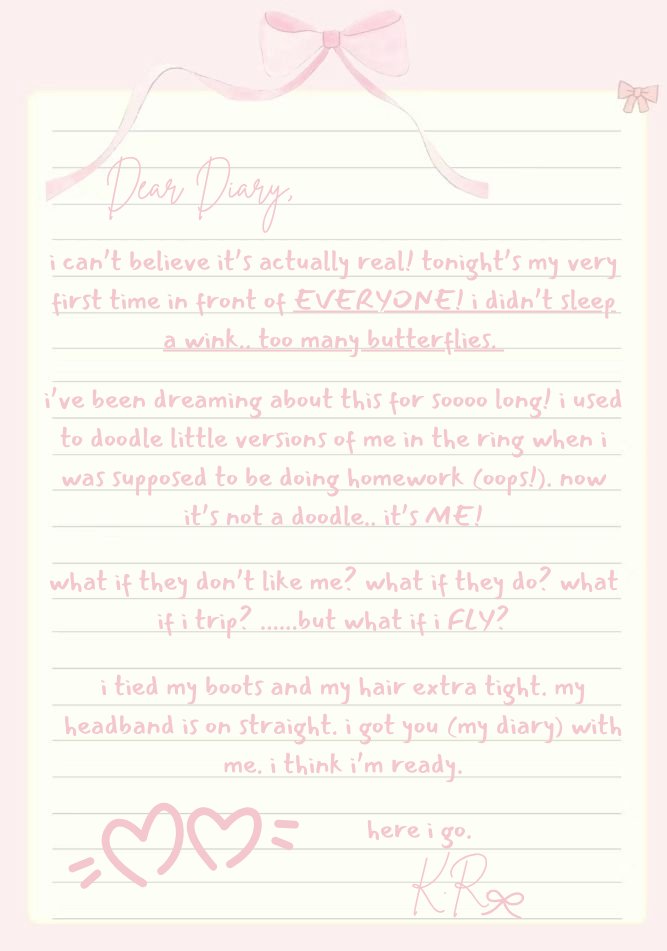 Dear Diary,
i can't believe it's actually real! tonight's my very
first time in front of EVERYONE! i didn't sleep
a wink.. too many butterflies.
i've been dreaming about this for soooo long! i used
to doodle little versions of me in the ring when i
was supposed to be doing homework (oops!). now
it's not a doodle.. it's ME!
what if they don't like me? what if they do? what
if i trip? ......but what if i FLY?
i tied my boots and my hair extra tight. my
headband is on straight. i got you (my diary) with
me. i think i'm ready.
here i go.
K.R